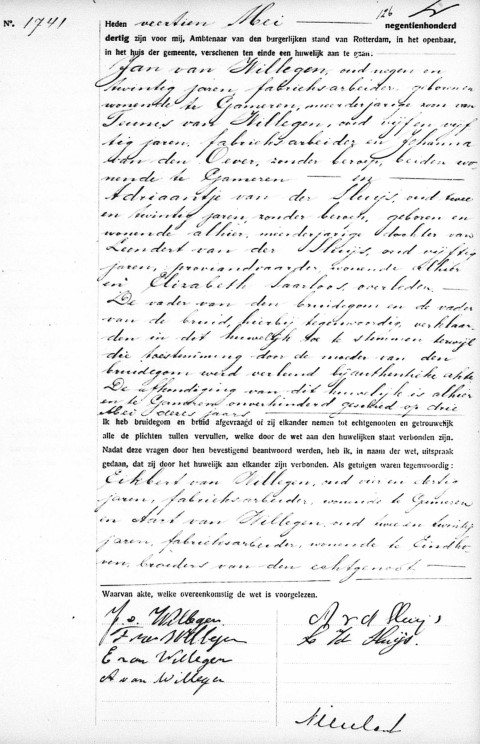 Nº. 1741
126
Heden veertien Mei negentienhonderd
dertig zijn voor mij, Ambtenaar van den burgerlijken stand van Rotterdam, in het openbaar,
in het huis der gemeente, verschenen ten einde een huwelijk aan te gaan:
Jan van Willegen, oud negen en
twintig jaren, fabrieksarbeider, geboren en
wonende te Gameren, meerderjarige zoon van
Teunis van Willegen, oud vijf en vijf-
tig jaren, fabrieksarbeider en Johanna
van den Oever, zonder beroep, beiden wo-
nende te Gameren — en —
Adriaantje van der Sluijs, oud twee
en twintig jaren, zonder beroep, geboren en
wonende alhier, meerderjarige dochter van
Leendert van der Sluijs, oud vijftig
jaren, proviandvaarder, wonende alhier
en Elizabeth Saarloos, overleden. —
De vader van den bruidegom en de vader
van de bruid, hierbij tegenwoordig, verklaar-
den in dit huwelijk toe te stemmen terwijl
die toestemming door de moeder van den
bruidegom werd verleend bij authentieke akte
De afkondiging van dit huwelijk is alhier
en te Gameren onverhinderd geschied op drie
Mei dezes jaars
Ik heb bruidegom en bruid afgevraagd of zij elkander nemen tot echtgenooten en getrouwelijk
alle de plichten zullen vervullen, welke door de wet aan den huwelijken staat verbonden zijn.
Nadat deze vragen door hen bevestigend beantwoord werden, heb ik, in naam der wet, uitspraak
gedaan, dat zij door het huwelijk aan elkander zijn verbonden. Als getuigen waren tegenwoordig:
Eikbert van Willegen, oud vier en dertig
jaren, fabrieksarbeider, wonende te Gameren
en Aart van Willegen, oud twee en twintig
jaren, fabrieksarbeider, wonende te Eindho-
ven, broeders van den echtgenoot. —
Waarvan akte, welke overeenkomstig de wet is voorgelezen.
J. v. Willegen A v d Sluijs
T van Willegen L vd Sluijs
E van Willegen
A van Willegen